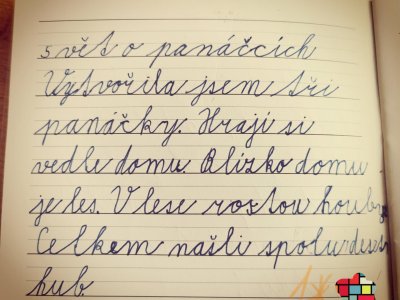 svět o panáčcích
Vytvořila jsem tři
panáčky. Hrají si
vedle domu. Blízko domu
je les. V lese rostou houby.
Celkem našli spolu deset
hub